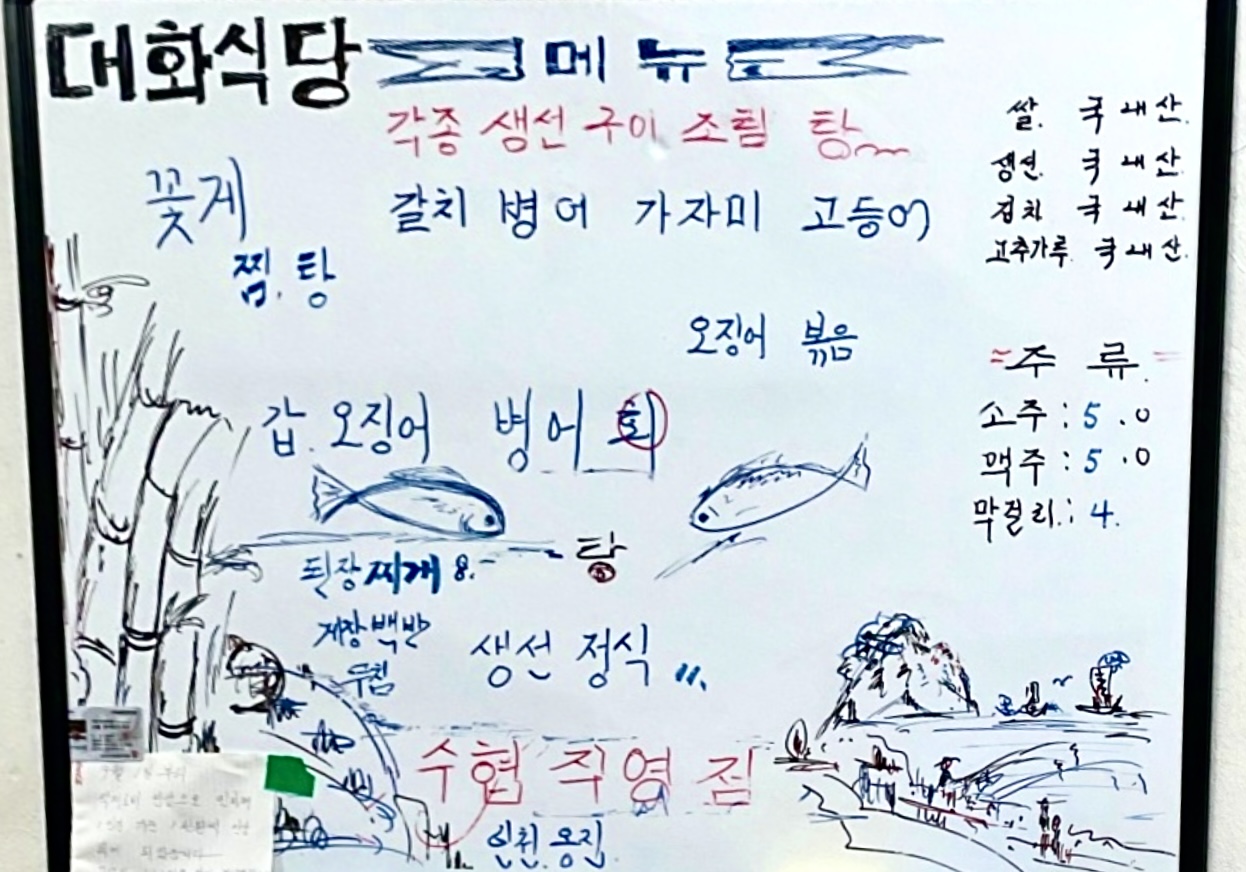 대화식당 메뉴
각종 생선 구이 조림 탕
쌀. 국내산.
생선. 국내산.
김치 국내산.
고추가루. 국내산.
꽃게
찜. 탕
갈치 병어 가자미 고등어
오징어 볶음
갑.오징어 병어 회
주 류.
소주 : 5.0
맥주 : 5.0
막걸리 : 4.
탕
된장찌개 8.-
게장백반
무침
생선 정식 "
수협 직영점
인천.옹진.